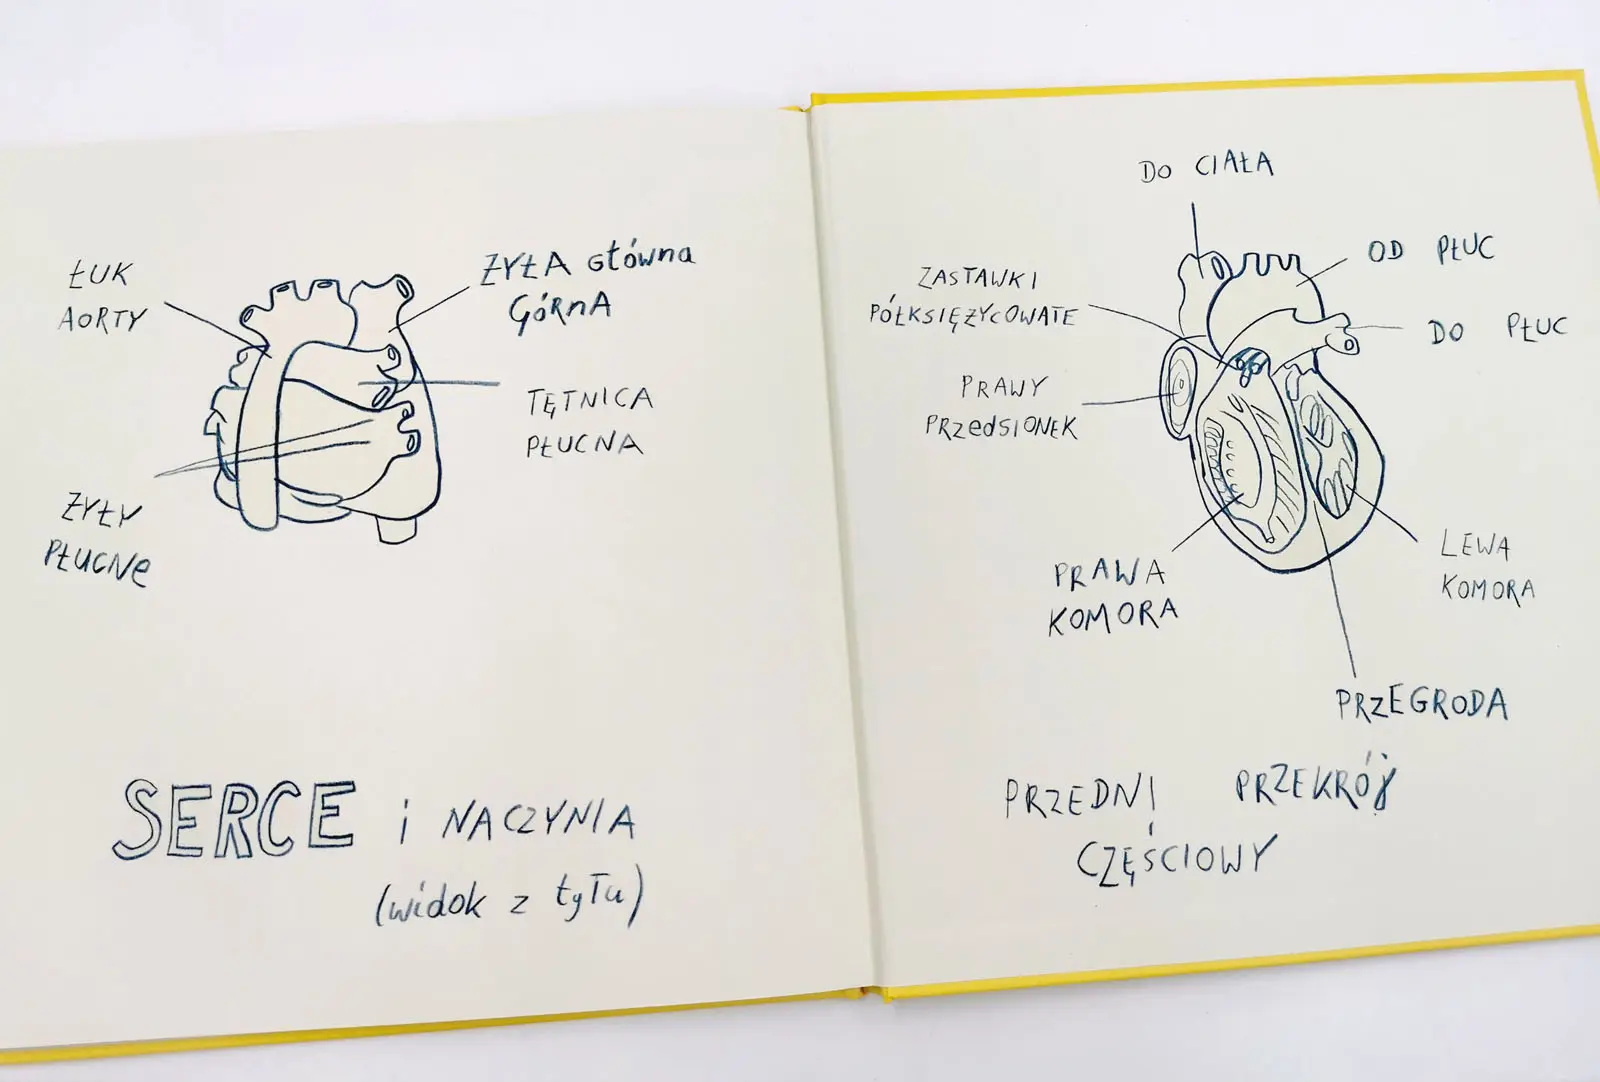 ŁUK
AORTY
ŻYŁA Główna
GÓRnA
TĘTNICA
PŁUCNA
ŻYŁY
PŁUCNe
SERCE i NACZYNIA
(widok z tyłu)
DO CIAŁA
OD PŁUC
DO PŁUC
ZASTAWKI
PÓŁKSIĘŻYCOWATE
PRAWY
PRZedSIONEK
PRAWA
KOMORA
LEWA
KOMORA
PRZEGRODA
PRZEDNI PRZEKRÓj
CZĘŚCIOWY